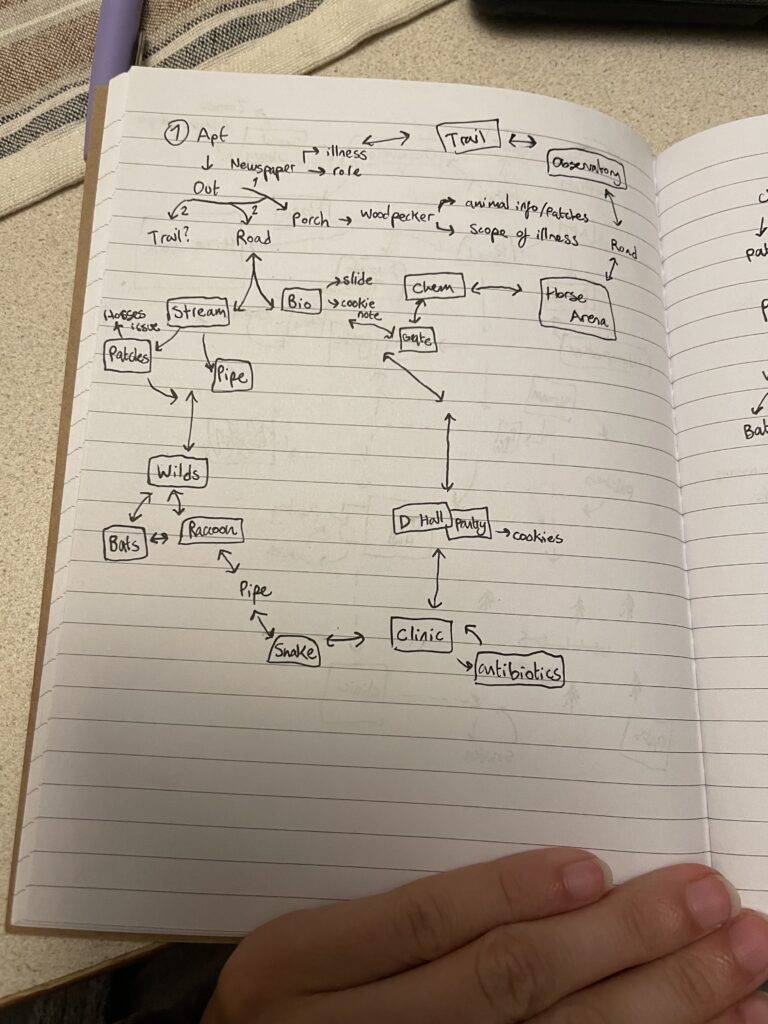 ① Apt
Trail
Observatory
Newspaper
illness
role
Out
1
2
2
Porch
Woodpecker
animal info/patches
scope of illness
Trail?
Road
Road
Bio
slide
cookie
note
Chem
Horse
Arena
Stream
Horses
issue
Patches
Pipe
Gate
Wilds
Bats
Raccoon
D Hall
pantry
cookies
Pipe
Snake
Clinic
antibiotics
pat
Bat